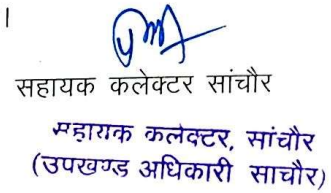 सहायक कलेक्टर सांचौर
सहायक कलेक्टर, सांचौर
(उपखण्ड अधिकारी साचौर)